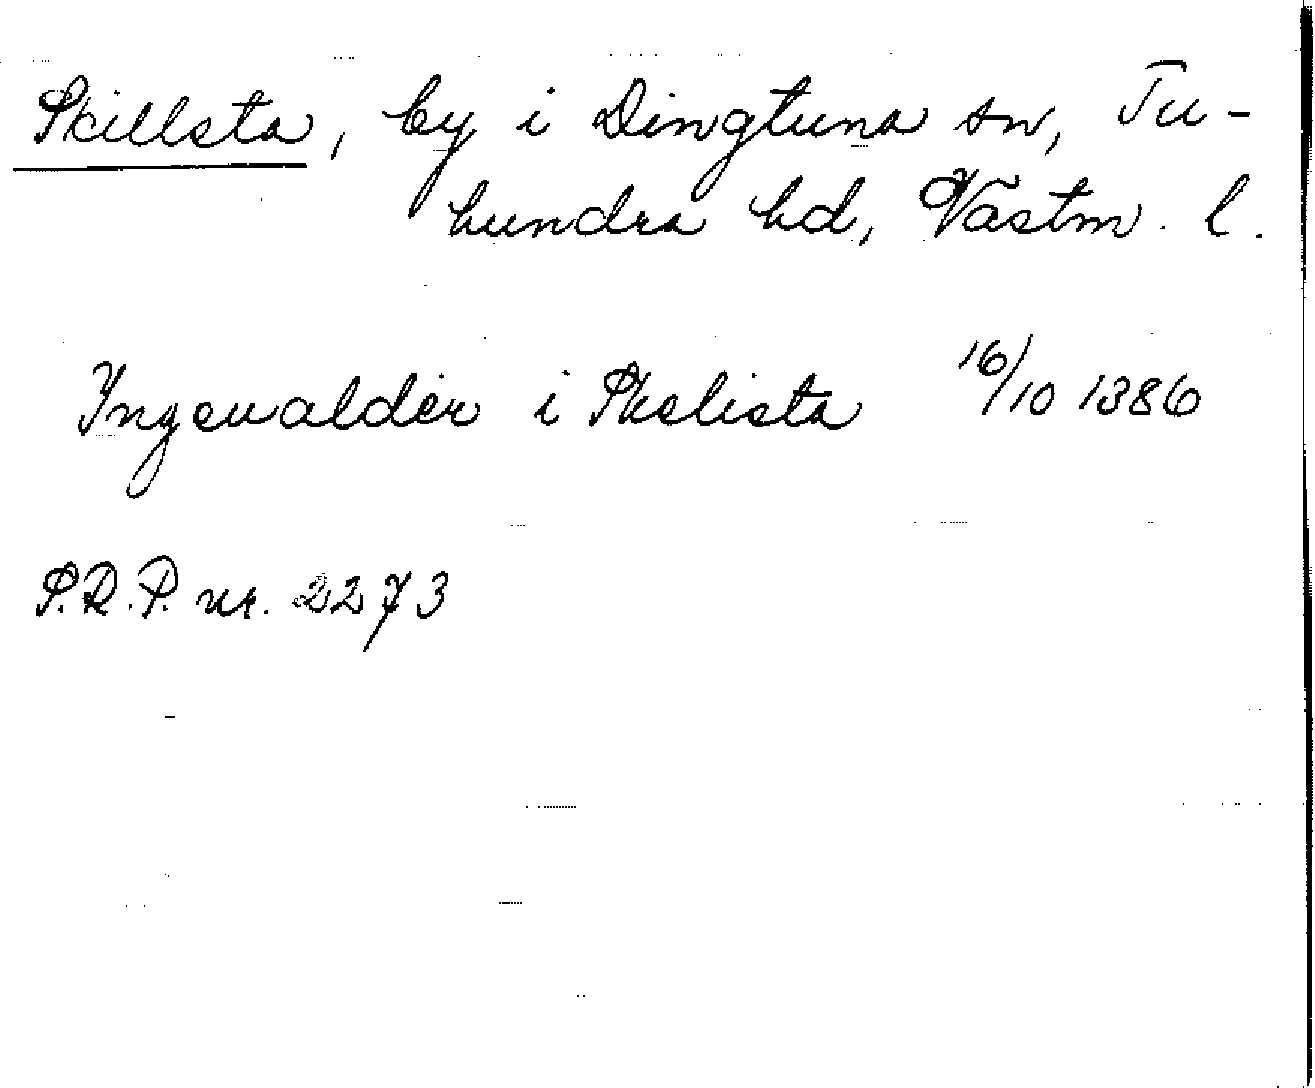 Skillsta, by i Dingtuna sn, Tu-
hundra hd, Västm. l.
Yngewalder i Skelista 16/10 1386
S.R.P. nr. 2273